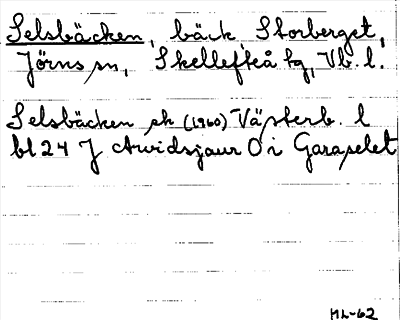 Selsbäcken, bäck, Storberget,
Jörns sn, Skellefteå tg, Vb. l.
Selsbäcken sk (1960) Västerb. l
bl 24 J Arvidsjaur O i Garaselet
ML-62